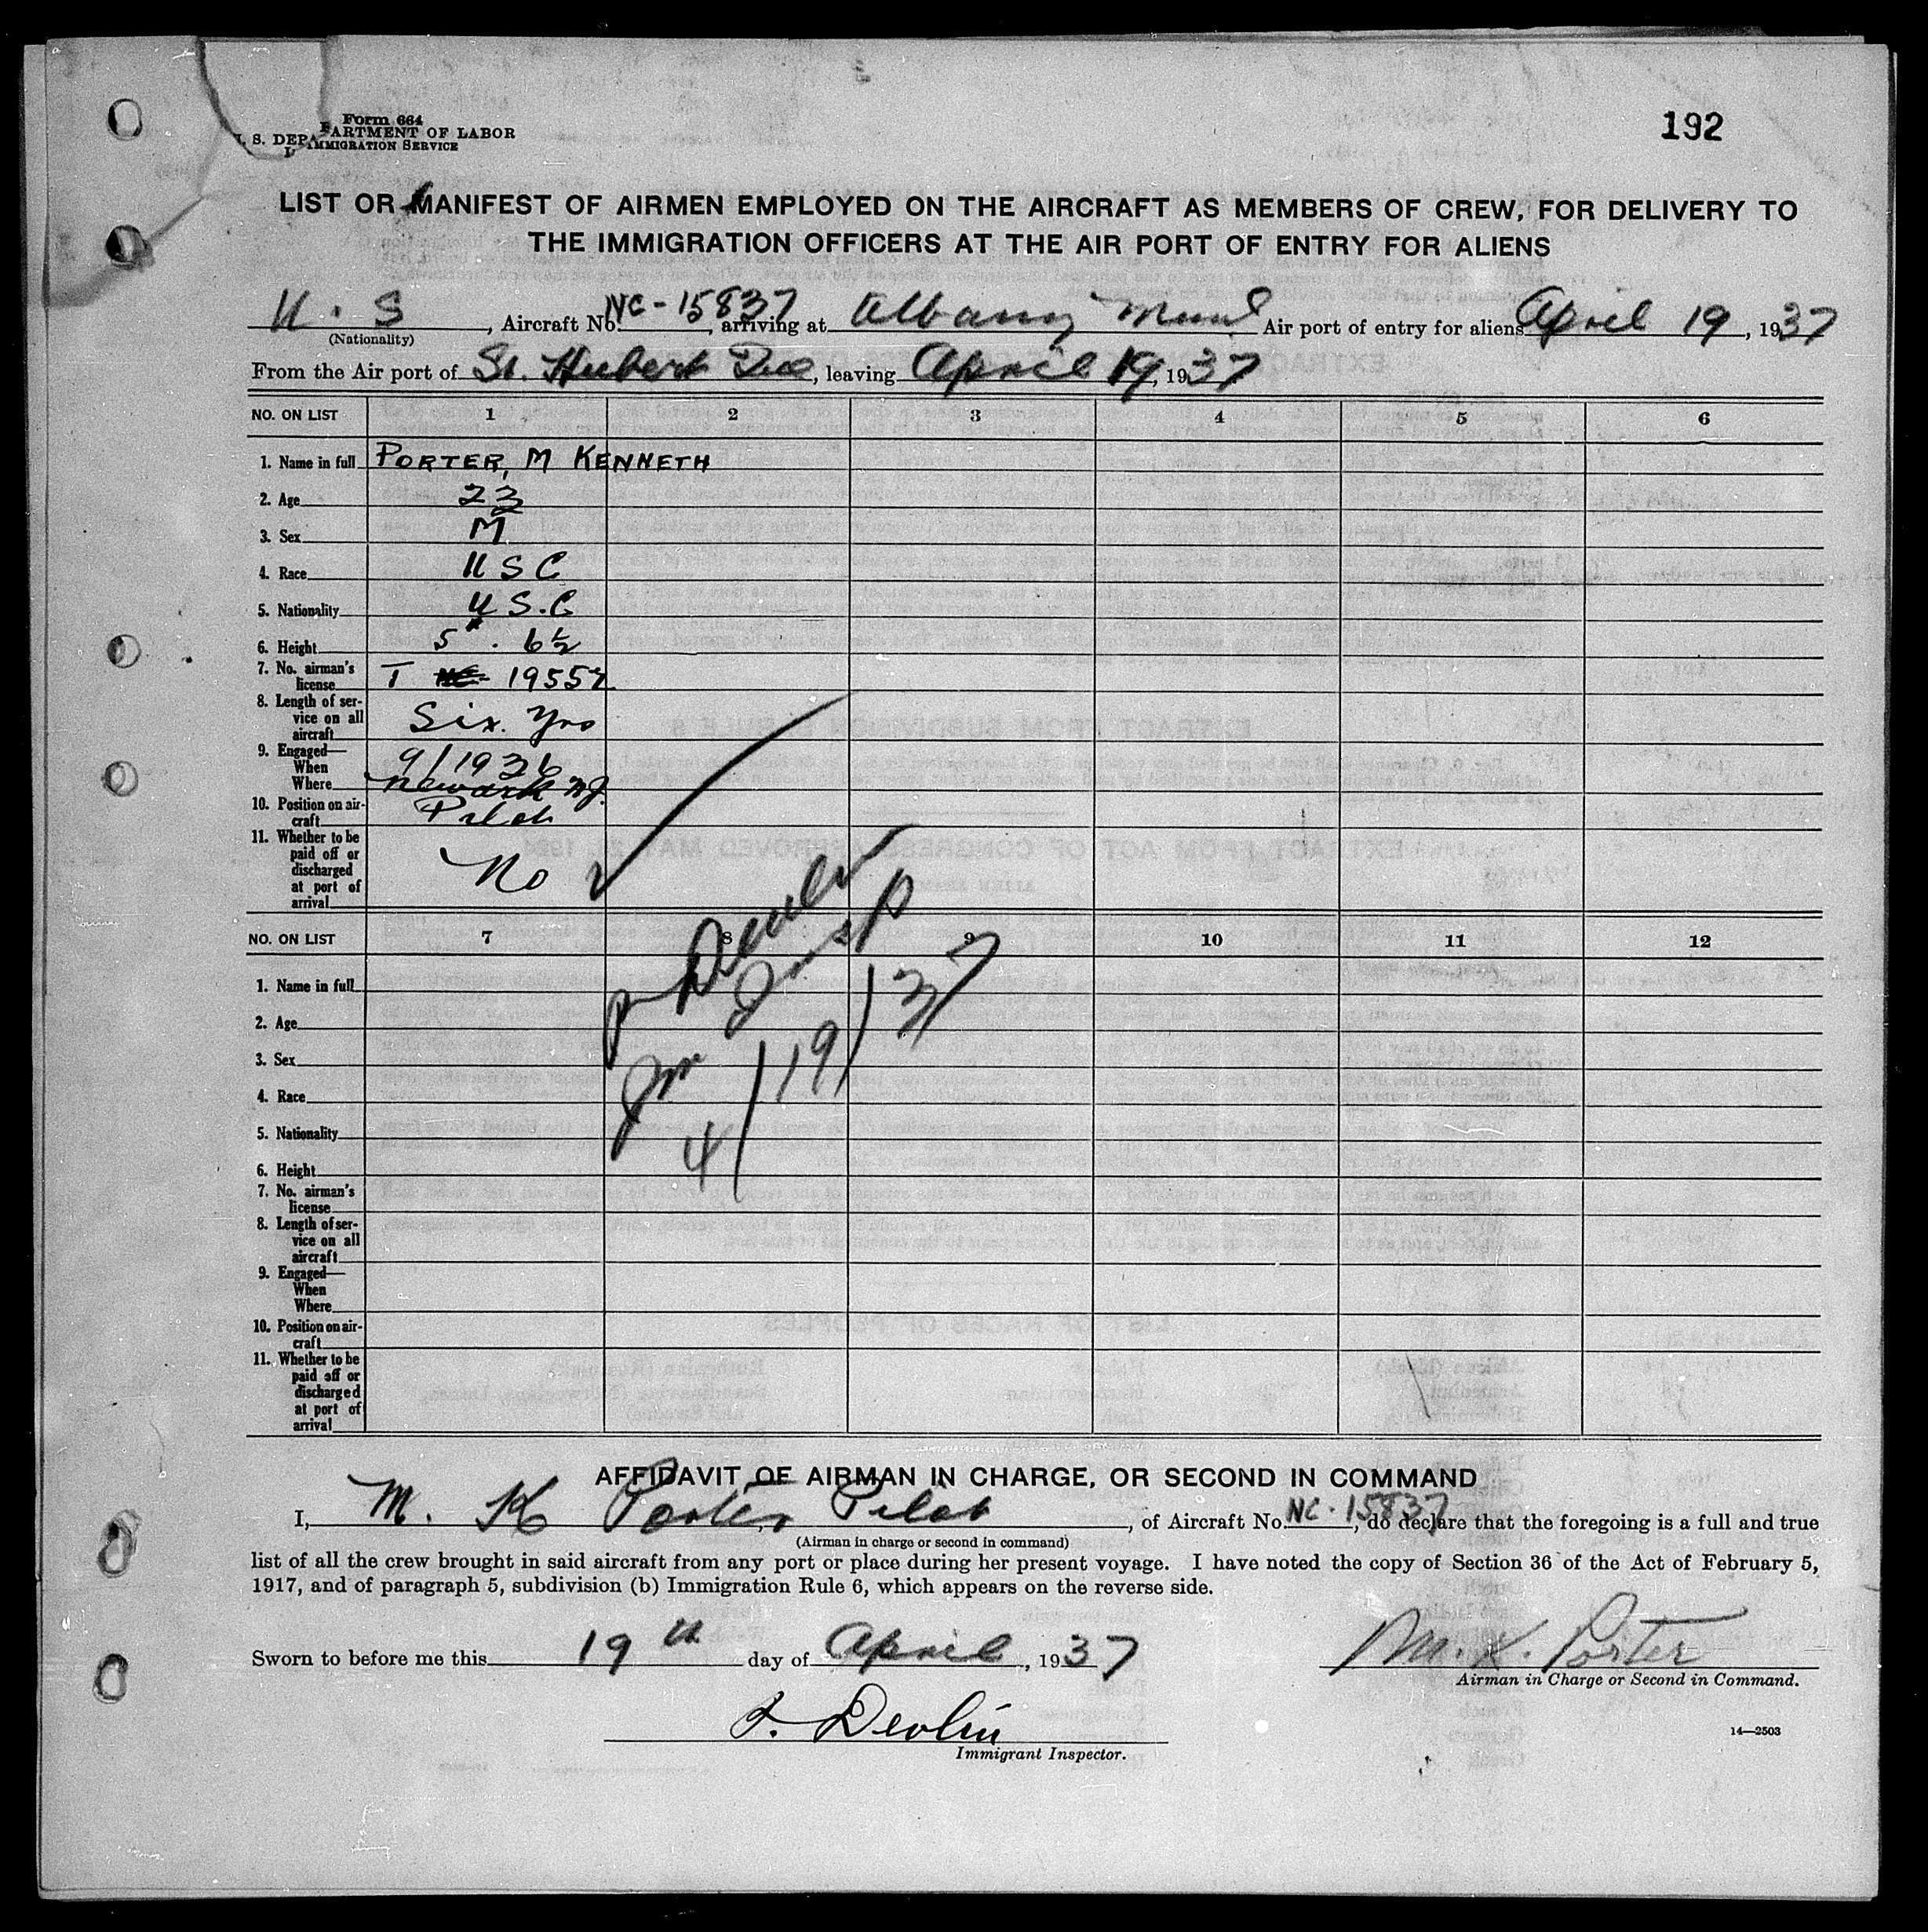 192
Form 664
U. S. DEPARTMENT OF LABOR
IMMIGRATION SERVICE
LIST OR MANIFEST OF AIRMEN EMPLOYED ON THE AIRCRAFT AS MEMBERS OF CREW, FOR DELIVERY TO
THE IMMIGRATION OFFICERS AT THE AIR PORT OF ENTRY FOR ALIENS
U. S , Aircraft No. NC-15837, arriving at Albany Air port of entry for aliens April 19, 1937
(Nationality)
From the Air port of St. Hubert, leaving April 19, 1937
NO. ON LIST 1 2 3 4 5 6
1. Name in full PORTER, M KENNETH
2. Age 23
3. Sex M
4. Race U S C
5. Nationality U S.C
6. Height 5" . 6½
7. No. airman's
license T 19557
8. Length of ser-
vice on all
aircraft Six. Yrs
9. Engaged—
When 9/1936
Where Newark NJ.
10. Position on air-
craft Pilot
11. Whether to be
paid off or
discharged
at port of
arrival No
NO. ON LIST 7 8 9 10 11 12
Devlin
Insp
4/19/37
1. Name in full
2. Age
3. Sex
4. Race
5. Nationality
6. Height
7. No. airman's
license
8. Length of ser-
vice on all
aircraft
9. Engaged—
When
Where
10. Position on air-
craft
11. Whether to be
paid off or
discharged
at port of
arrival
AFFIDAVIT OF AIRMAN IN CHARGE, OR SECOND IN COMMAND
I, M. K Porter, Pilot, of Aircraft No. NC-15837, do declare that the foregoing is a full and true
(Airman in charge or second in command)
list of all the crew brought in said aircraft from any port or place during her present voyage. I have noted the copy of Section 36 of the Act of February 5,
1917, and of paragraph 5, subdivision (b) Immigration Rule 6, which appears on the reverse side.
Sworn to before me this 19th day of April, 1937
M. K. Porter
Airman in Charge or Second in Command.
J. Devlin
Immigrant Inspector.
14—2503